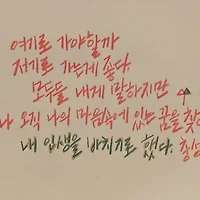 여기로 가야할까
저기로 가는게 좋다.
모두들 내게 말하지만
나 오직 나의 마음속에 있는 꿈을 찾
내 인생을 바치기로 했다.